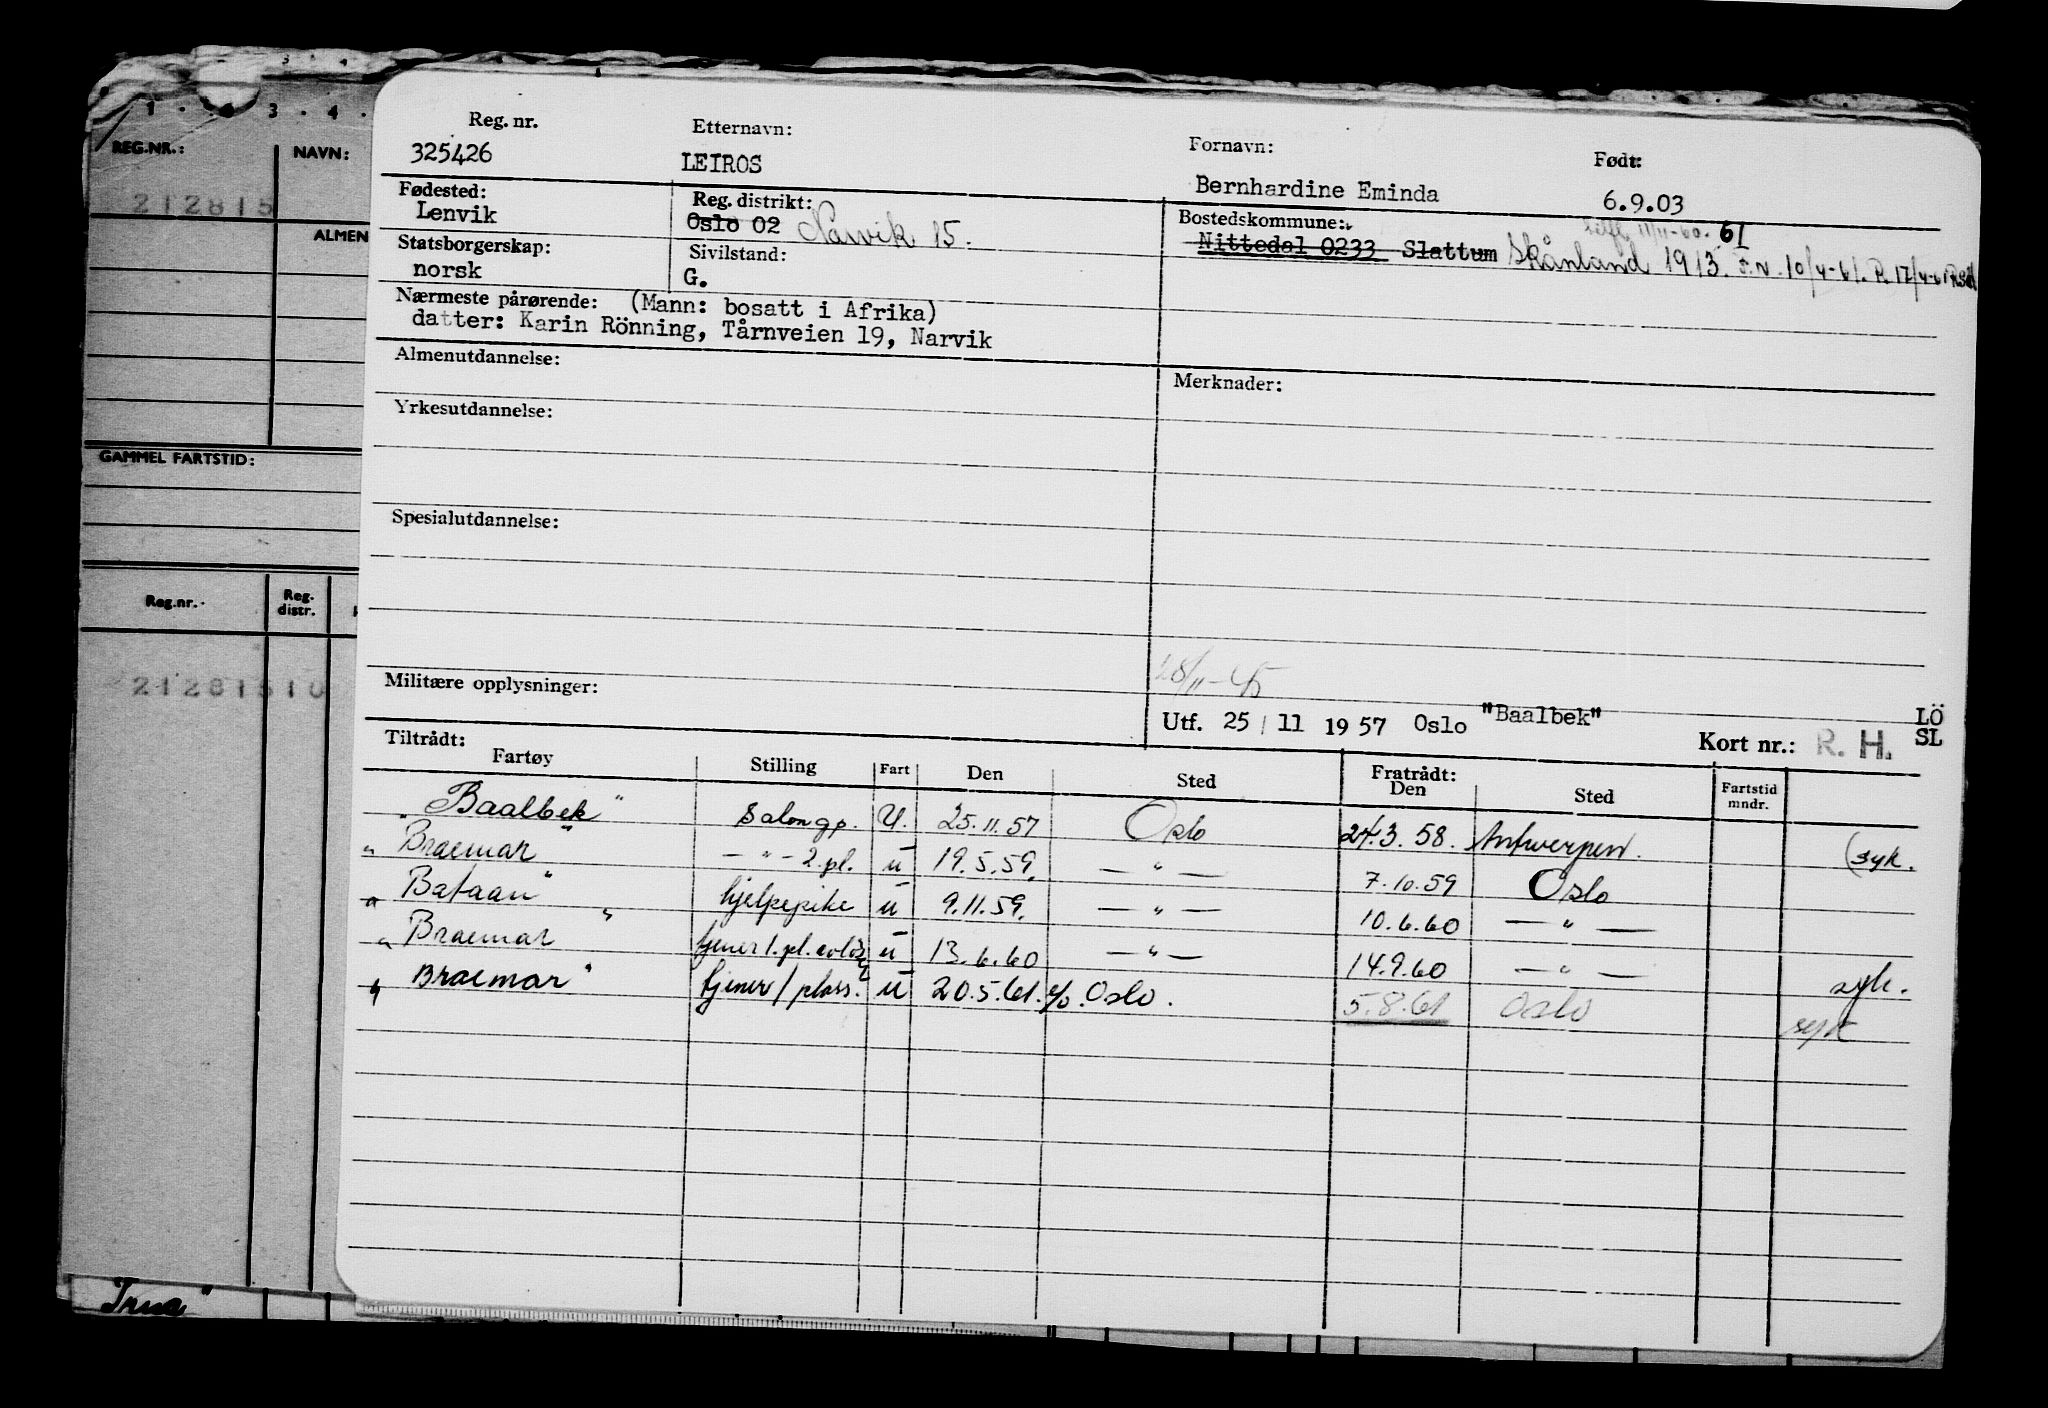 1 · 2 · 3 · 4 ·
REG.NR.: NAVN:
212815
ALMEN
GAMMEL FARTSTID:
Reg.nr. Reg. distr.
21281510
"
Reg. nr. Etternavn: Fornavn: Født:
325426 LEIROS Bernhardine Eminda 6.9.03
Fødested: Reg. distrikt: Bostedskommune:
Lenvik Oslo 02 Narvik 15. 11/11-60. 61
Nittedal 0233 Slattum Skånland 1913. F.N. 10/4-61. P. 17/4-61
Statsborgerskap: Sivilstand:
norsk G.
Nærmeste pårørende: (Mann: bosatt i Afrika)
datter: Karin Rönning, Tårnveien 19, Narvik
Almenutdannelse: Merknader:
Yrkesutdannelse:
Spesialutdannelse:
Militære opplysninger:
Utf. 25 / 11 1957 Oslo "Baalbek" LÖ
Kort nr.: R. H. SL
Tiltrådt: Fratrådt:
Fartøy Stilling Fart Den Sted Den Sted Fartstid mndr.
"Baalbek" Salongp. U. 25.11.57 Oslo 24.3.58. Antwerpen. (syk.
"Braemar" — " — 2.pl. u 19.5.59. — " — 7.10.59 Oslo
"Bataan" hjelpepike u 9.11.59. — " — 10.6.60 — " —
"Braemar" tjener 1.pl. u 13.6.60 — " — 14.9.60 — " — syk.
"Braemar" tjener 1 plass. u 20.5.61. Oslo. 5.8.61 Oslo syk